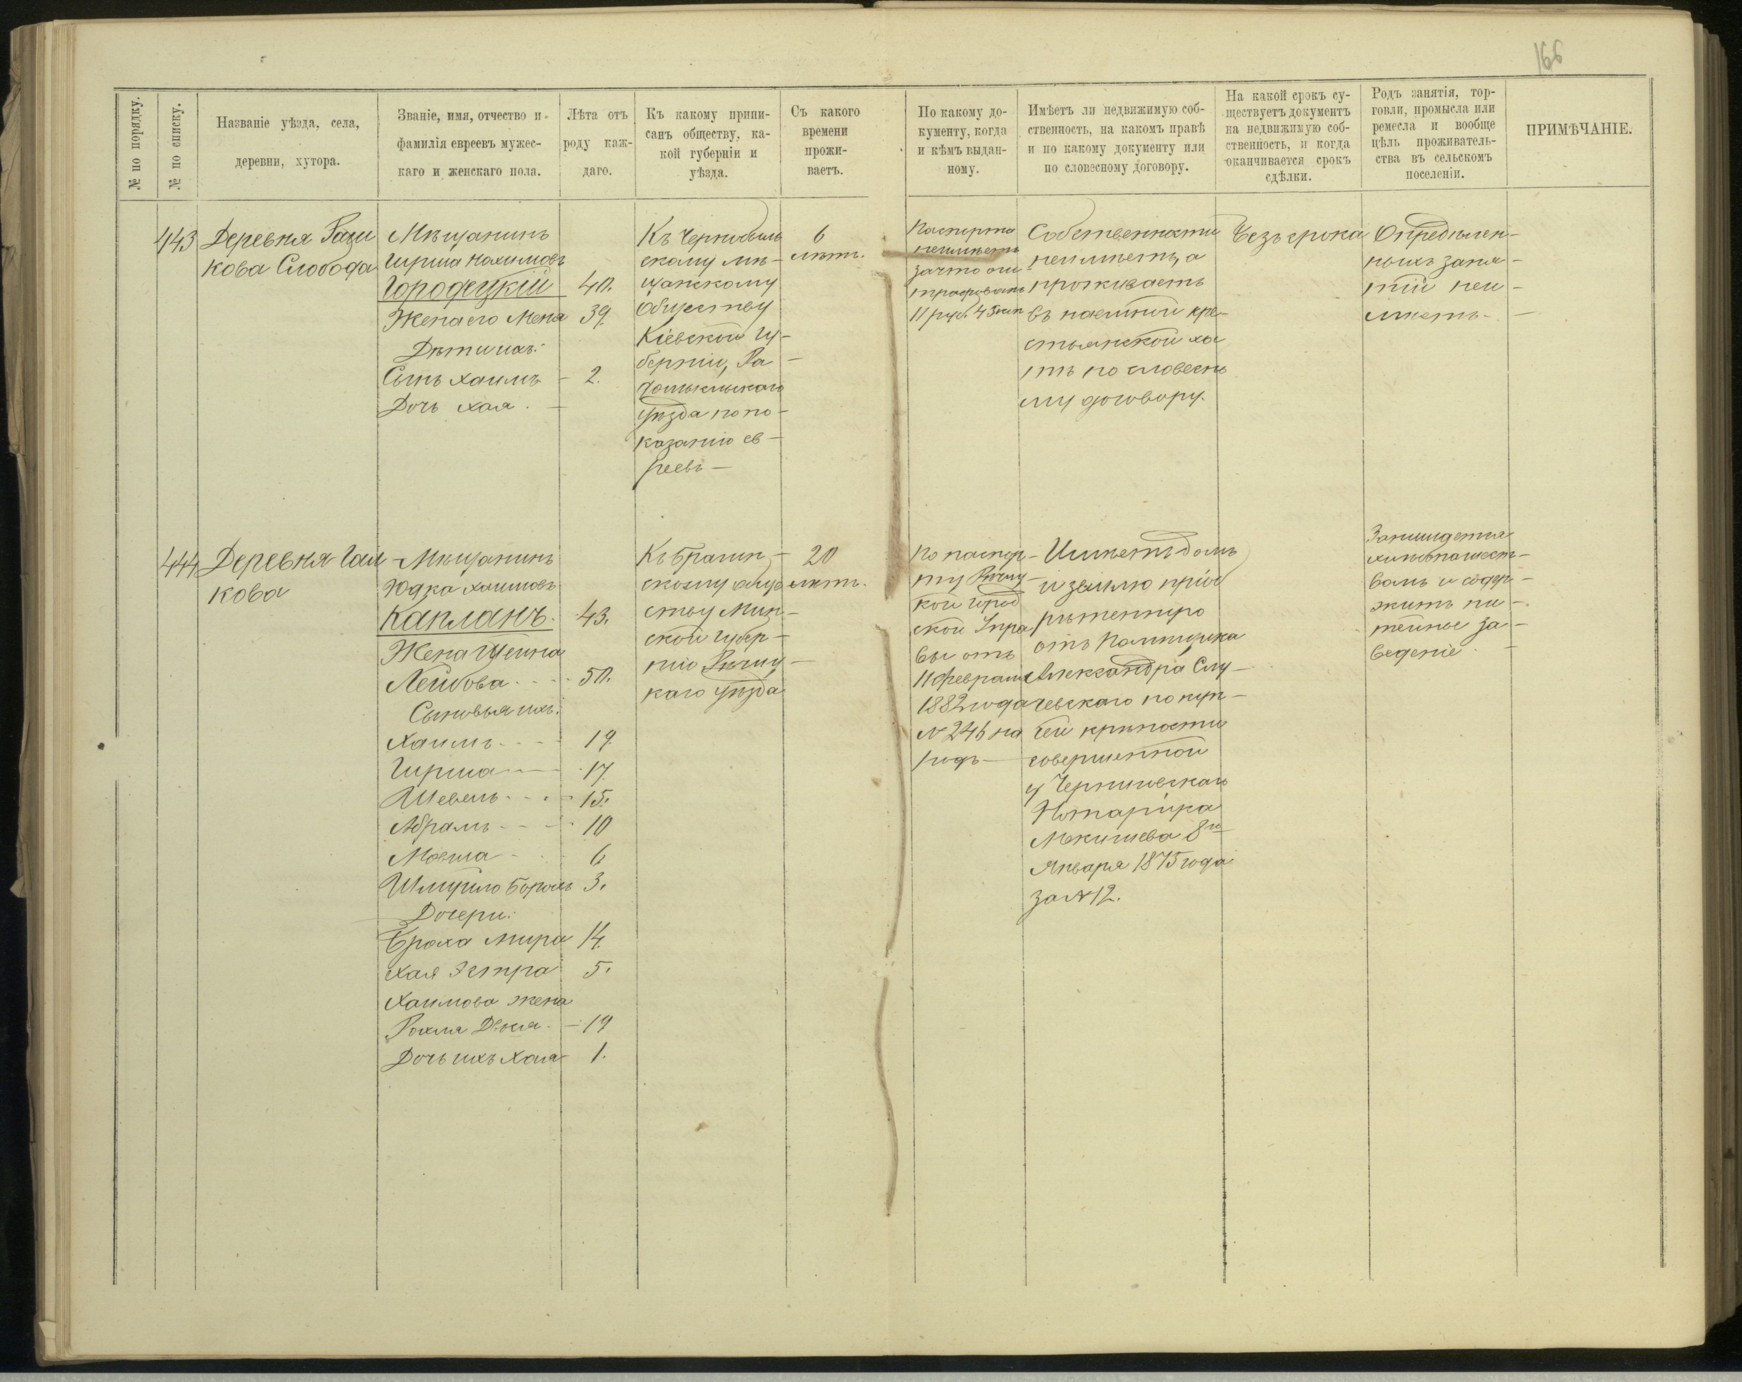 166
№ по порядку.
№ по списку.
Названіе уѣзда, села,
деревни, хутора.
Званіе, имя, отчество и
фамилія евреевъ мужес-
каго и женскаго пола.
Лѣта отъ
роду каж-
даго.
Къ какому припи-
санъ обществу, ка-
кой губерніи и
уѣзда.
Съ какого
времени
прожи-
ваетъ.
По какому до-
кументу, когда
и кѣмъ выдан-
ному.
Имѣетъ ли недвижимую соб-
ственность, на какомъ правѣ
и по какому документу или
по словесному договору.
На какой срокъ су-
ществуетъ документъ
на недвижимую соб-
ственность, и когда
оканчивается срокъ
сдѣлки.
Родъ занятія, тор-
говли, промысла или
ремесла и вообще
цѣль проживатель-
ства въ сельскомъ
поселеніи.
ПРИМѢЧАНІЕ.
443
Деревня
кова Слобода
Мѣщанинъ
Гирша Нохимовъ
Городецкій 40.
Жена его Меня 39.
Дѣти ихъ:
Сынъ Хаимъ – 2.
Дочь Хая. –
Къ Чернобыль
скому мѣ–
щанскому
Обществу
Кіевской гу–
берніи, Ра–
домысльскаго
уѣзда по по–
казанію ев–
реевъ –
6
лѣтъ.
Паспорта
неимѣетъ
за что ош
трафованъ
11 руб. 45 коп
Собственности
неимѣетъ, а
проживаетъ
въ наемной кре–
стьянской ха
тѣ по словесно
му договору.
Безъ срока
Опредѣлен–
ныхъ заня–
тій неи–
мѣетъ –
444
Деревня Гал–
кова
Мѣщанинъ
Юдка Хаимовъ
Капланъ. 43.
Жена Шейна
Лейбова 50.
Сыновья ихъ:
Хаимъ 19
Гирша 17
Шевель 15.
Абрамъ 10
Мовша 6
Шмуйло Борохъ 3.
Дочери:
Броха Мира 14.
Хая Эстра 5.
Хаимова жена
Рохля Двося – 19
Дочь ихъ Хая 1.
Къ Брагин–
скому обще
ству Мин–
ской губер–
ніи Рѣчиц–
каго уѣзда
20
лѣтъ.
По паспор–
ту Рѣчиц–
кой город
ской Упра
вы отъ
11 февраля
1882 года
№ 246 на
годъ –
Имѣетъ домъ
и землю пріоб
рѣтенную
отъ Помѣщика
Александра Слу–
чевскаго по куп–
чей крѣпости
совершенной
у Черниговскаго
Нотаріуса
8го
Января 1875 года
за № 12.
Занимается
хлѣбопашест–
вомъ и содер–
житъ пи–
тейное за–
веденіе